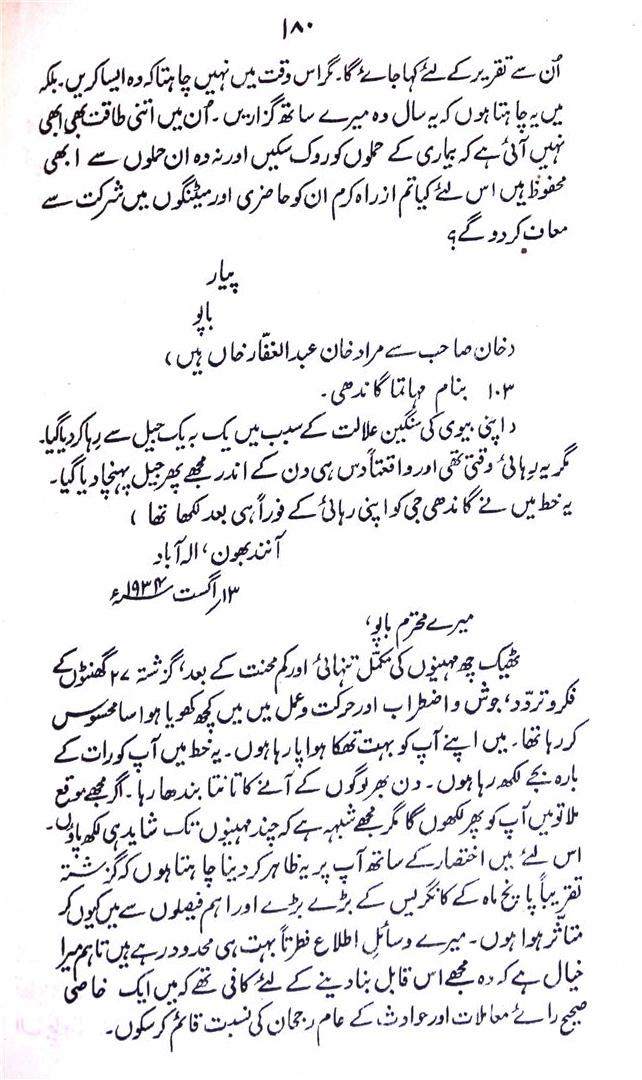 ۱۸۰
اُن سے تقریر کے لئے کہا جائے گا۔ مگر اس وقت میں نہیں چاہتا کہ وہ ایسا کریں۔ بلکہ
میں یہ چاہتا ہوں کہ یہ سال وہ میرے ساتھ گزاریں۔ اُن میں اتنی طاقت بھی ابھی
نہیں آئی ہے کہ بیماری کے حملوں کو روک سکیں اور نہ وہ ان حملوں سے ابھی
محفوظ ہیں اس لئے کیا تم از راہ کرم ان کو حاضری اور میٹنگوں میں شرکت سے
معاف کر دو گے؟
پیار
باپو
(خان صاحب سے مراد خان عبدالغفّار خاں ہیں)
۱۰۳ بنام مہاتما گاندھی۔
(اپنی بیوی کی سنگین علالت کے سبب میں یک بہ یک جیل سے رہا کر دیا گیا۔
مگر یہ رہائی وقتی تھی اور واقعتاً دس ہی دن کے اندر مجھے پھر جیل پہنچا دیا گیا۔
یہ خط میں نے گاندھی جی کو اپنی رہائی کے فوراً ہی بعد لکھا تھا)
آنند بھون، الہ آباد
۱۳ر اگست ۱۹۳۴ء
میرے محترم باپو،
ٹھیک چھ مہینوں کی مکمّل تنہائی اور کم محنت کے بعد، گزشتہ ۲۷ گھنٹوں کے
فکر و تردّد، جوش و اضطراب اور حرکت و عمل میں میں کچھ کھویا ہوا سا محسوس
کر رہا تھا۔ میں اپنے آپ کو بہت تھکا ہوا پا رہا ہوں۔ یہ خط میں آپ کو رات کے
بارہ بجے لکھ رہا ہوں۔ دن بھر لوگوں کے آنے کا تانتا بندھا رہا۔ اگر مجھے موقع
ملا تو میں آپ کو پھر لکھوں گا مگر مجھے شبہہ ہے کہ چند مہینوں تک شاید ہی لکھ پاؤں۔
اس لئے میں اختصار کے ساتھ آپ پر یہ ظاہر کر دینا چاہتا ہوں کہ گزشتہ
تقریباً پانچ ماہ کے کانگریس کے بڑے بڑے اور اہم فیصلوں سے میں کیوں کر
متاثّر ہوا ہوں۔ میرے وسائلِ اطلاع فطرتاً بہت ہی محدود رہے ہیں تاہم میرا
خیال ہے کہ وہ مجھے اس قابل بنا دینے کے لئے کافی تھے کہ میں ایک خاصی
صحیح رائے معاملات اور حوادث کے عام رجحان کی نسبت قائم کر سکوں۔